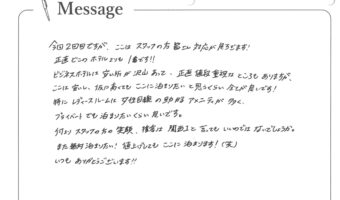 Message
今回2回目ですが、ここは スタッフの方 皆さん 対応が 良すぎます!
正直 どこの ホテルよりも 1番です!!
ビジネスホテルは 安い所が 沢山あって、正直 値段重視な ところも ありますが、
ここは 安いし、仮に高くても ここに泊まりたい と 思うくらい 全てが 良いです!
特に レディースルームは 女性目線 の 助かる アメニティが 多く、
プライベート でも 泊まりたいくらい 良いです。
何より スタッフの方の 笑顔、接客は 関西1と 言っても いいのでは ないでしょうか。
また 絶対 泊まりたい! 値上げしても ここに 泊まります! (笑)
いつも ありがとうございます!!